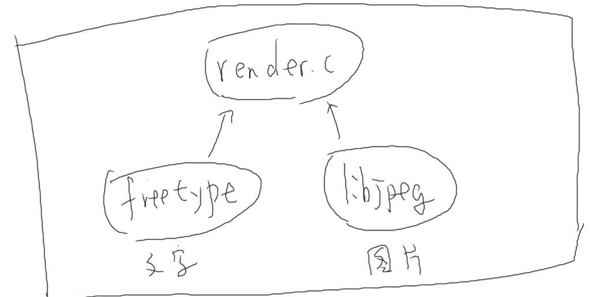 render.c
freetype
libjpeg
文字
图片